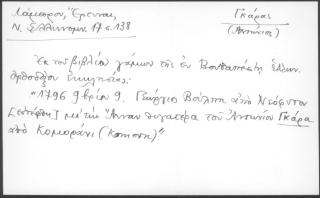 Λάμπρου, Έρευναι,
Ν. Ελληνομν. 17 σ. 138
Γκάρας
(Αντώνιος)
Εκ του βιβλίου γάμων της εν Βουδαπέστη ελλην.
ορθοδόξου εκκλησίας:
"1796 9βρίου 9. Γεώργιον Βούλπη από Νεόρντον
με την Άνναν θυγατέρα του Αντωνίου Γκάρα
από Κομοράνι (Κομοση)"